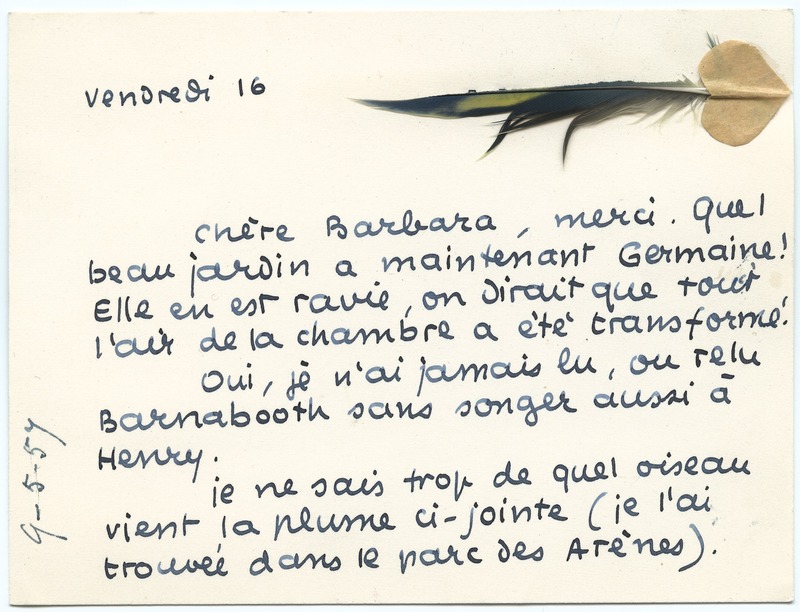 Vendredi 16
Chère Barbara, merci. Quel
beau jardin a maintenant Germaine!
Elle en est ravie, on dirait que tout
l'air de la chambre a été transformé.
Oui, je n'ai jamais lu, ou relu
Barnabooth sans songer aussi à
Henry.
je ne sais trop de quel oiseau
vient la plume ci-jointe (je l'ai
trouvée dans le parc des Arènes).
9-5-57